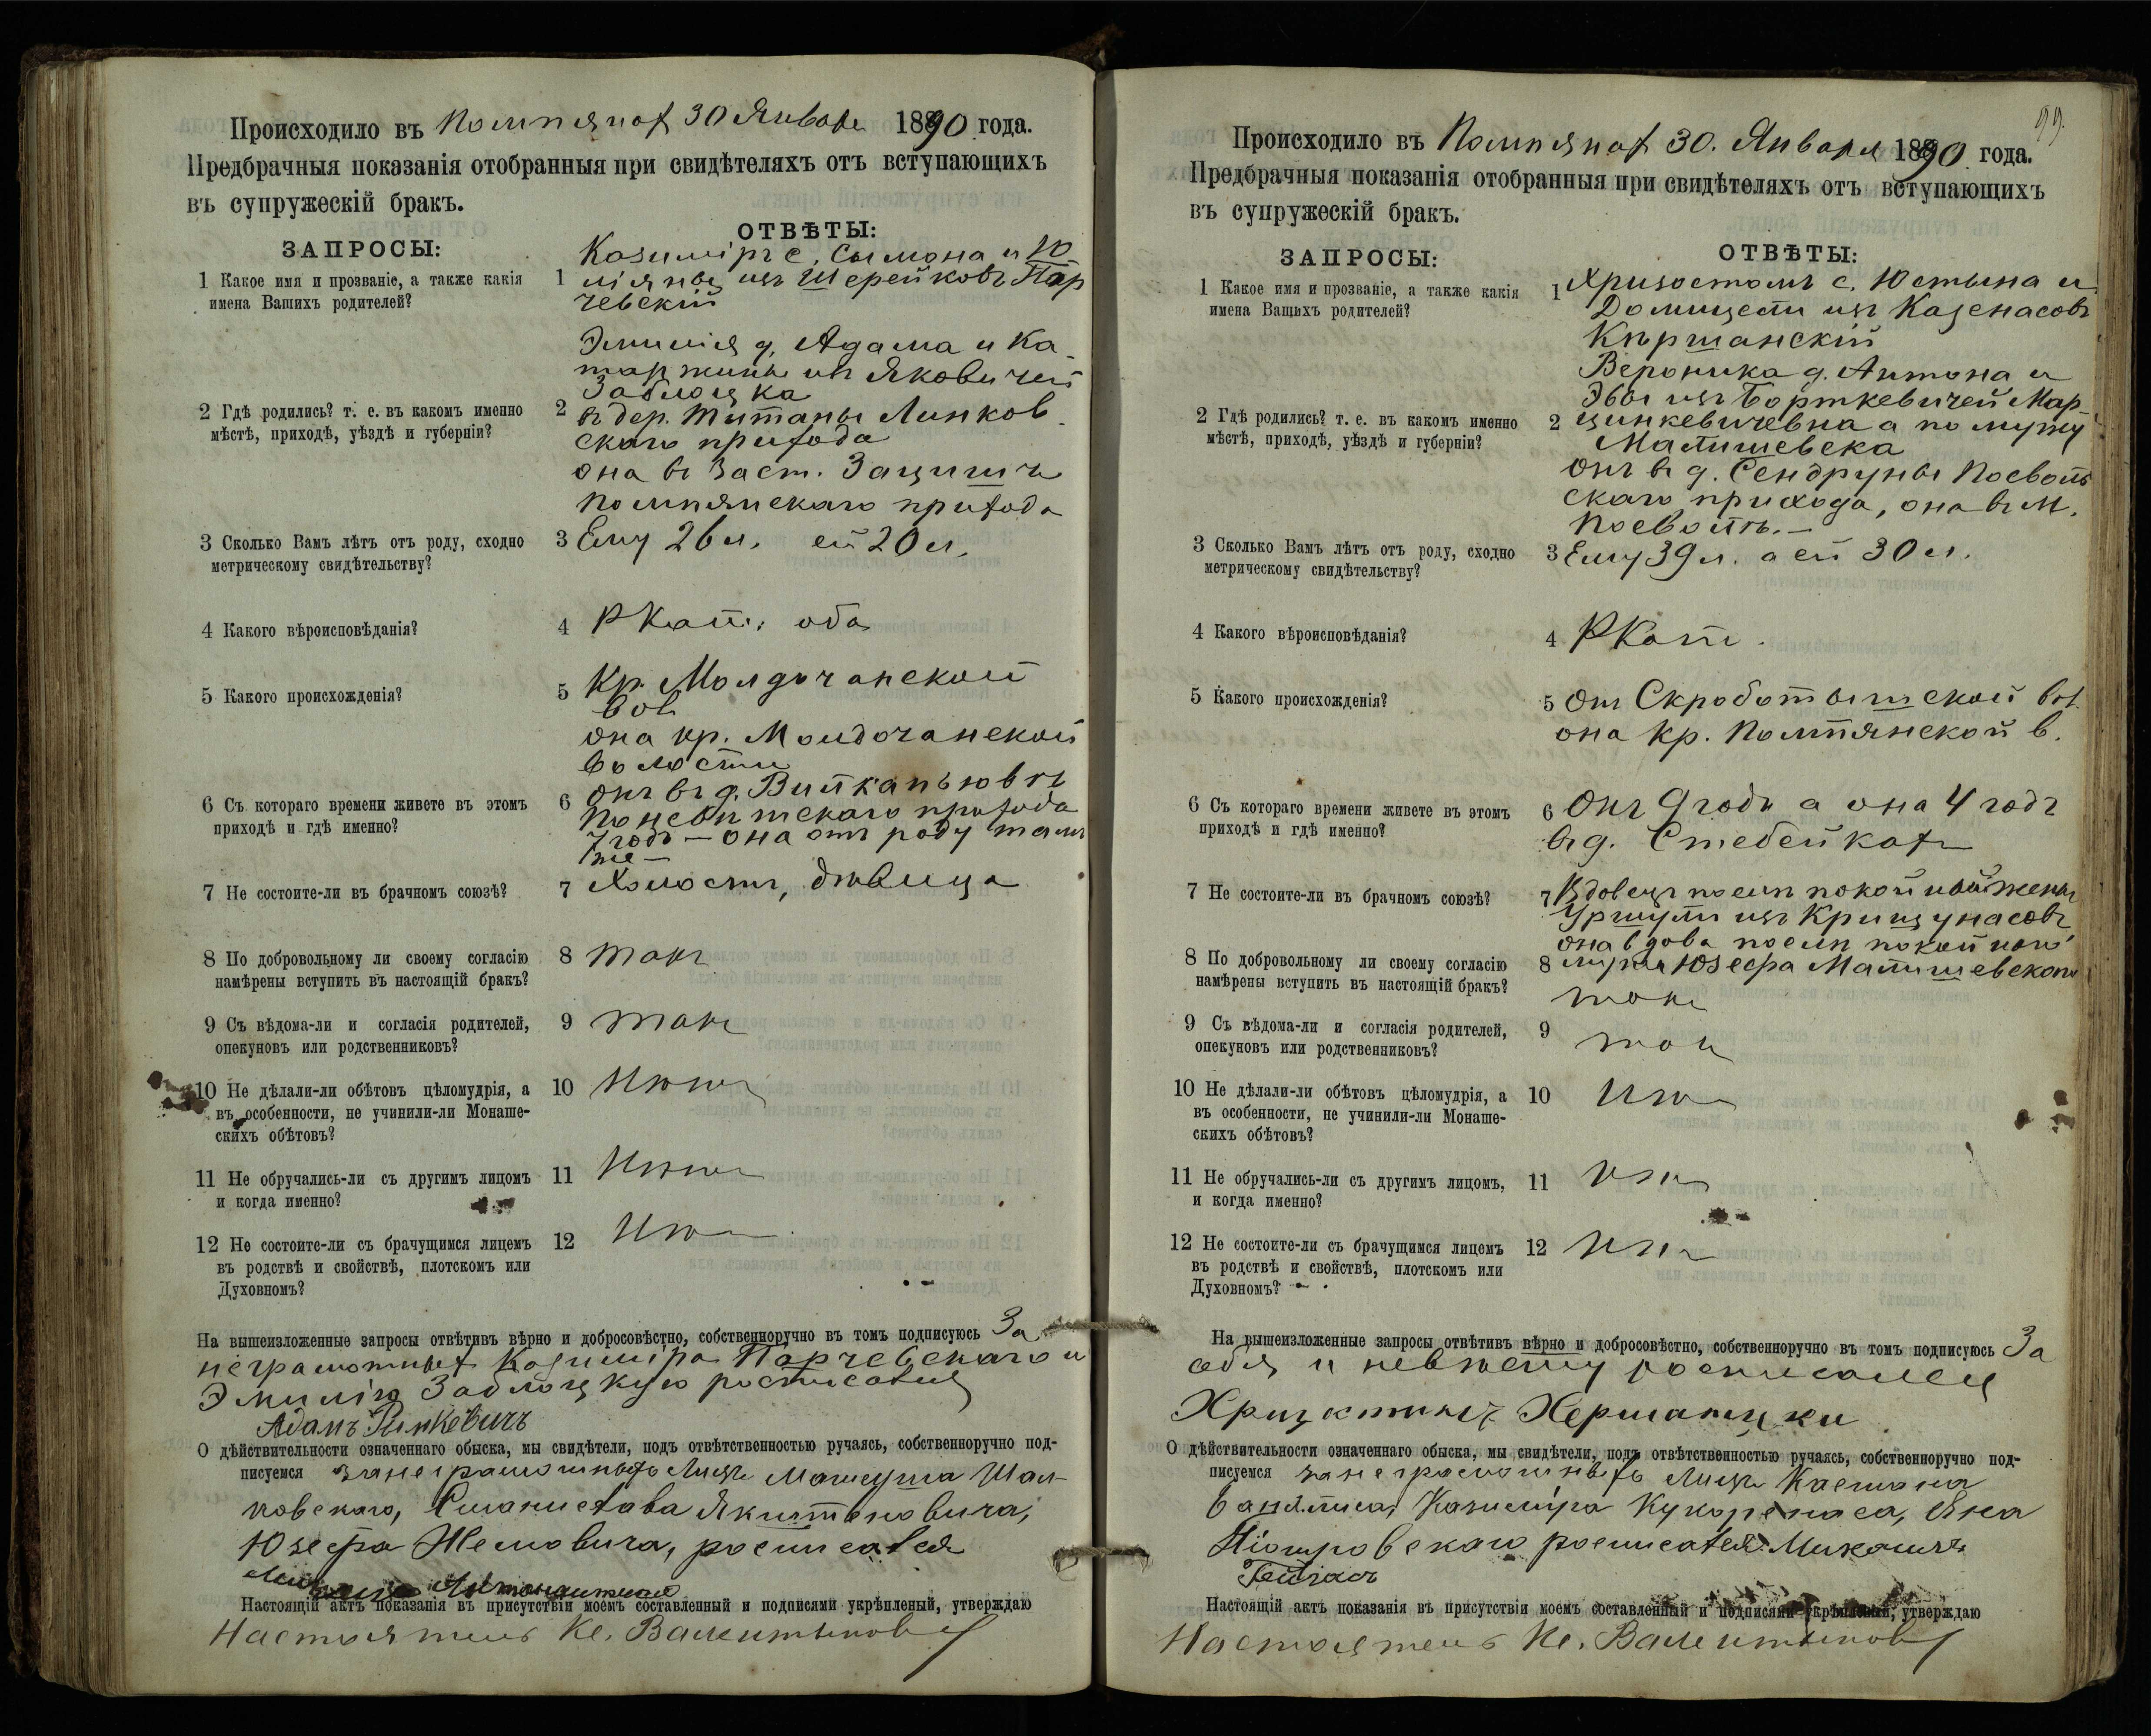 Происходило въ Помпянах 30 Января 1890 года.
Предбрачныя показанія отобранныя при свидѣтеляхъ отъ вступающихъ
въ супружескій бракъ.
ЗАПРОСЫ:
ОТВѢТЫ:
1 Какое имя и прозваніе, а также какія
имена Вашихъ родителей?
1 Казиміръ с. Сымона и Ю
ліяны изъ Шерейковъ Пар
чевскій
Эмилія д. Адама и Ка-
таржины изъ Яковичей
Заблоцка
2 Гдѣ родились? т. е. въ какомъ именно
мѣстѣ, приходѣ, уѣздѣ и губерніи?
2 въ дер. Титаны Линков-
скаго прихода
она въ заст. Зацишь
Помпянскаго прихода
3 Сколько Вамъ лѣтъ отъ роду, сходно
метрическому свидѣтельству?
3 Ему 26 л. ей 20 л.
4 Какого вѣроисповѣданія?
4 РКат. оба
5 Какого происхожденія?
5 Кр. Молдочанской
вол
она кр. Молдочанской
волости
6 Съ котораго времени живете въ этомъ
приходѣ и гдѣ именно?
6 Онъ въ д.
прихода
7 годъ — она отъ роду тамъ
же —
7 Не состоите-ли въ брачномъ союзѣ?
7 Холостъ, дѣвица
8 По добровольному ли своему согласію
намѣрены вступить въ настоящій бракъ?
8 такъ
9 Съ вѣдома-ли и согласія родителей,
опекуновъ или родственниковъ?
9 такъ
10 Не дѣлали-ли обѣтовъ цѣломудрія, а
въ особенности, не учинили-ли Монаше-
скихъ обѣтовъ?
10 Нѣтъ
11 Не обручались-ли съ другимъ лицомъ
и когда именно?
11 Нѣтъ
12 Не состоите-ли съ брачущимся лицемъ
въ родствѣ и свойствѣ, плотскомъ или
Духовномъ?
12 Нѣтъ
На вышеизложенные запросы отвѣтивъ вѣрно и добросовѣстно, собственноручно въ томъ подписуюсь За
неграмотных Казиміра Парчевскаго и
Эмилію Заблоцкую росписался
Адамъ Ринкевичъ
О дѣйствительности означеннаго обыска, мы свидѣтели, подъ отвѣтственностью ручаясь, собственноручно под-
писуемся за неграмотныхъ лицъ Матеуша Шал-
ковскаго, Станислава Якштановича,
Юзефа Немовича, росписался
Настоящій актъ показанія въ присутствіи моемъ составленный и подписями укрѣпленый, утверждаю
Настоятель Кс. Валентынов
99.
Происходило въ Помпянах 30. Января 1890 года.
Предбрачныя показанія отобранныя при свидѣтеляхъ отъ вступающихъ
въ супружескій бракъ.
ЗАПРОСЫ:
ОТВѢТЫ:
1 Какое имя и прозваніе, а также какія
имена Вашихъ родителей?
1 Хризостомъ с. Юстына и
Домицели изъ Казенасовъ
Кѣршанскій
Вероника д. Антона и
Эвы изъ Борткевичей Мар-
цинкевичевна а по мужу
Матишевска
2 Гдѣ родились? т. е. въ какомъ именно
мѣстѣ, приходѣ, уѣздѣ и губерніи?
2
онъ въ д. Сендруны Посволь
скаго прихода, она въ М.
Посволѣ. —
3 Сколько Вамъ лѣтъ отъ роду, сходно
метрическому свидѣтельству?
3 Ему 39 л. а ей 30 л.
4 Какого вѣроисповѣданія?
4 РКат.
5 Какого происхожденія?
5 Он Скроботышской вол.
она Кр. Помпянской в.
6 Съ котораго времени живете въ этомъ
приходѣ и гдѣ именно?
6 Онъ 9 годъ а она 4 годъ
въ д. Стебейках
7 Не состоите-ли въ брачномъ союзѣ?
7 Вдовецъ послѣ покойной жены
Уршули изъ Крицунасовъ
она вдова послѣ покойнаго
мужа Юзефа Матишевскаго
8 По добровольному ли своему согласію
намѣрены вступить въ настоящій бракъ?
8
такъ
9 Съ вѣдома-ли и согласія родителей,
опекуновъ или родственниковъ?
9 такъ
10 Не дѣлали-ли обѣтовъ цѣломудрія, а
въ особенности, не учинили-ли Монаше-
скихъ обѣтовъ?
10 Нѣтъ
11 Не обручались-ли съ другимъ лицомъ,
и когда именно?
11 Нѣтъ
12 Не состоите-ли съ брачущимся лицемъ
въ родствѣ и свойствѣ, плотскомъ или
Духовномъ?
12 Нѣтъ
На вышеизложенные запросы отвѣтивъ вѣрно и добросовѣстно, собственноручно въ томъ подписуюсь За
себя и невѣсту росписался
О дѣйствительности означеннаго обыска, мы свидѣтели, подъ отвѣтственностью ручаясь, собственноручно под-
писуемся за неграмотныхъ лицъ Каетана
Казиміра Кухоренаса, Яна
Піотровскаго росписался Миколай
Настоящій актъ показанія въ присутствіи моемъ составленный и подписями укрѣпленый, утверждаю
Настоятель Кс. Валентынов